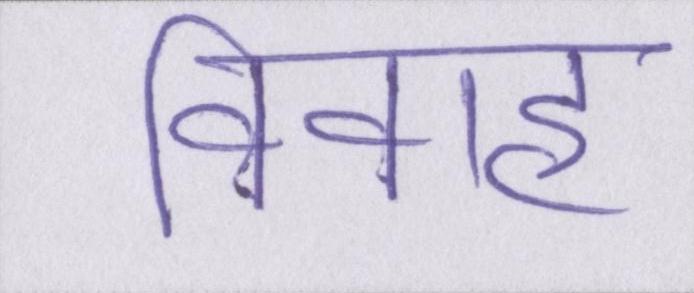 विवाह